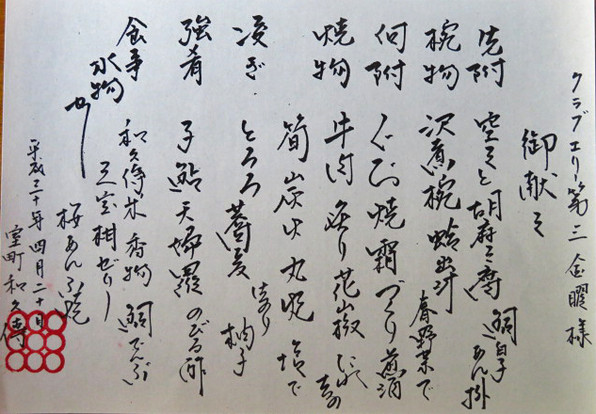 クラブエリー第三金曜様
御献立
先附 空豆と胡麻豆腐 鯛白子あん掛
椀物 沢煮椀 蛤出汁 春野菜で
向附 ぐじ焼霜づくり 煎酒
焼物 牛肉炙り花山椒
筍炭火丸焼 塩で
凌ぎ とろろ蕎麦 柚子
強肴 子鮎天婦羅 のびる酢
食事 和久傳米 香物 鯛でんぶ
水物
桜あん
平成三十年四月二十日
室町和久傳